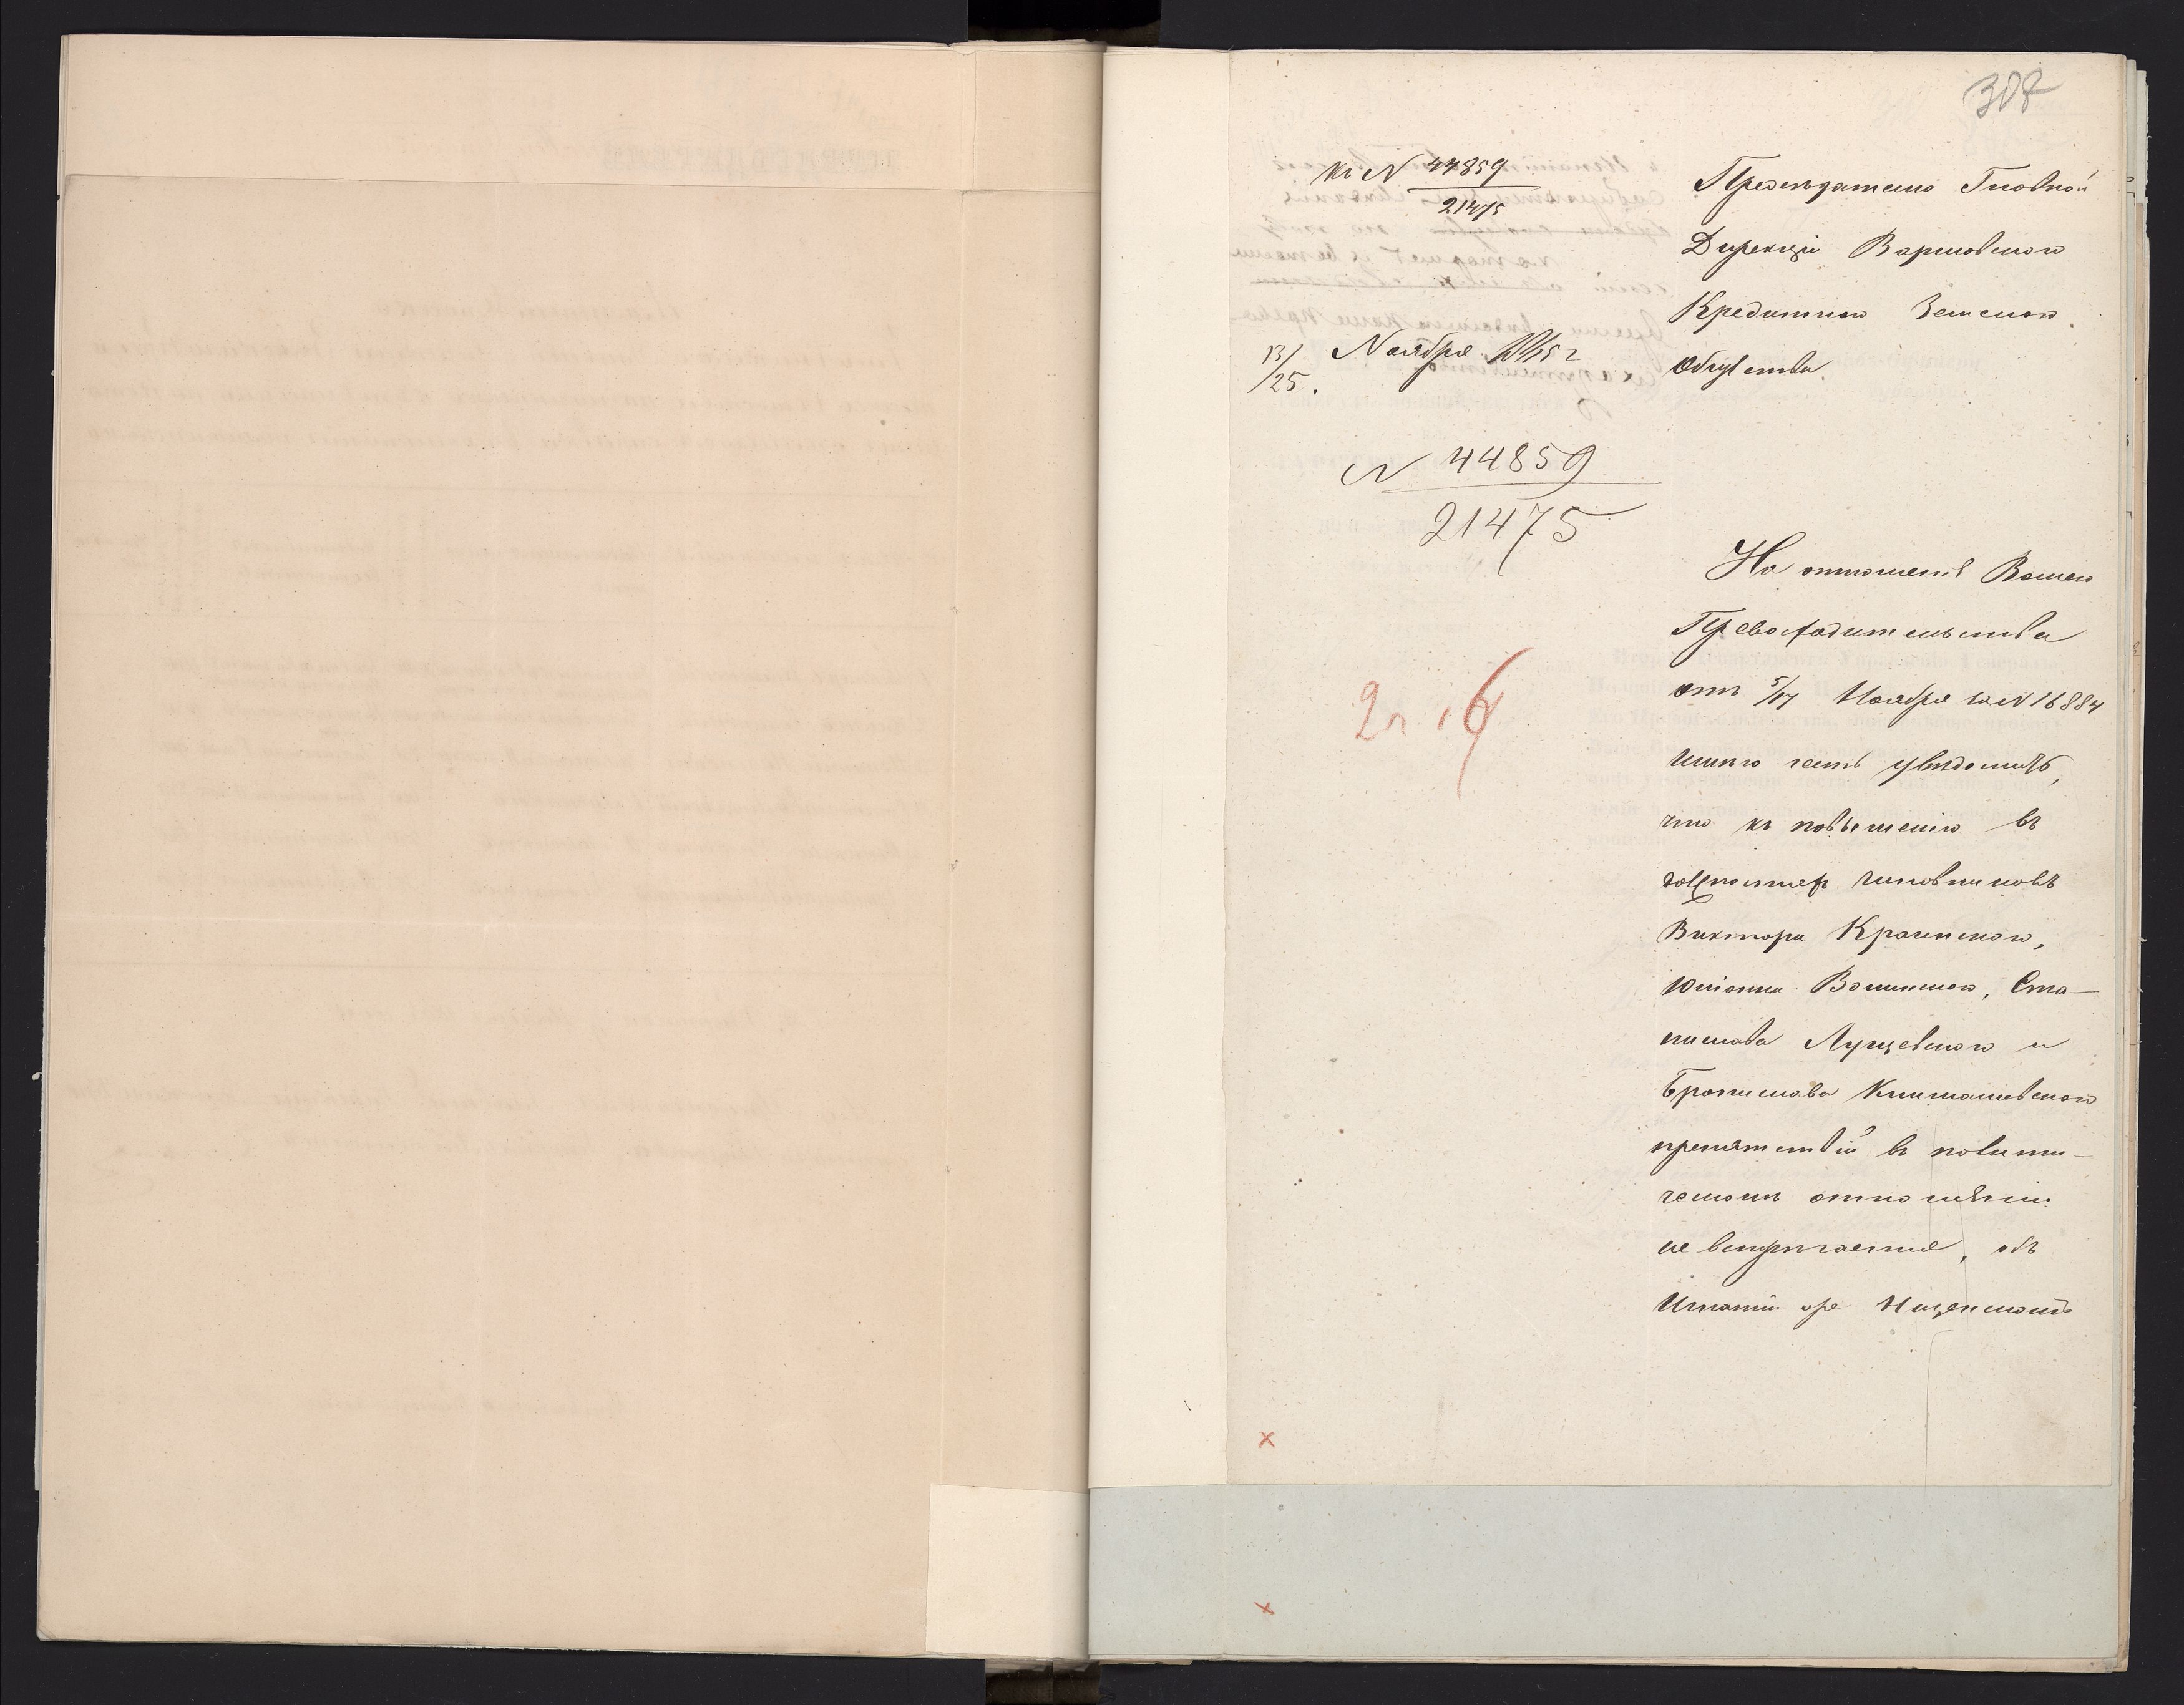 307
Къ N 44859
21475
13/25 Ноября
N 44859
21475
Предсѣдателю Главной
Дирекціи Варшавскаго
Кредитнаго Земскаго
Общества.
На отношеніе Вашего
Превосходительства
отъ 5/17 Ноября за N 16884
имѣю честь увѣдомить,
что къ повышенію въ
должностяхъ чиновниковъ
Виктора Краинскаго,
Юліана Волинскаго, Ста-
нислава Лущевскаго и
Бронислава Климашевскаго
препятствій въ полити-
ческомъ отношеніи
не встрѣчается, объ
Игнатіи же